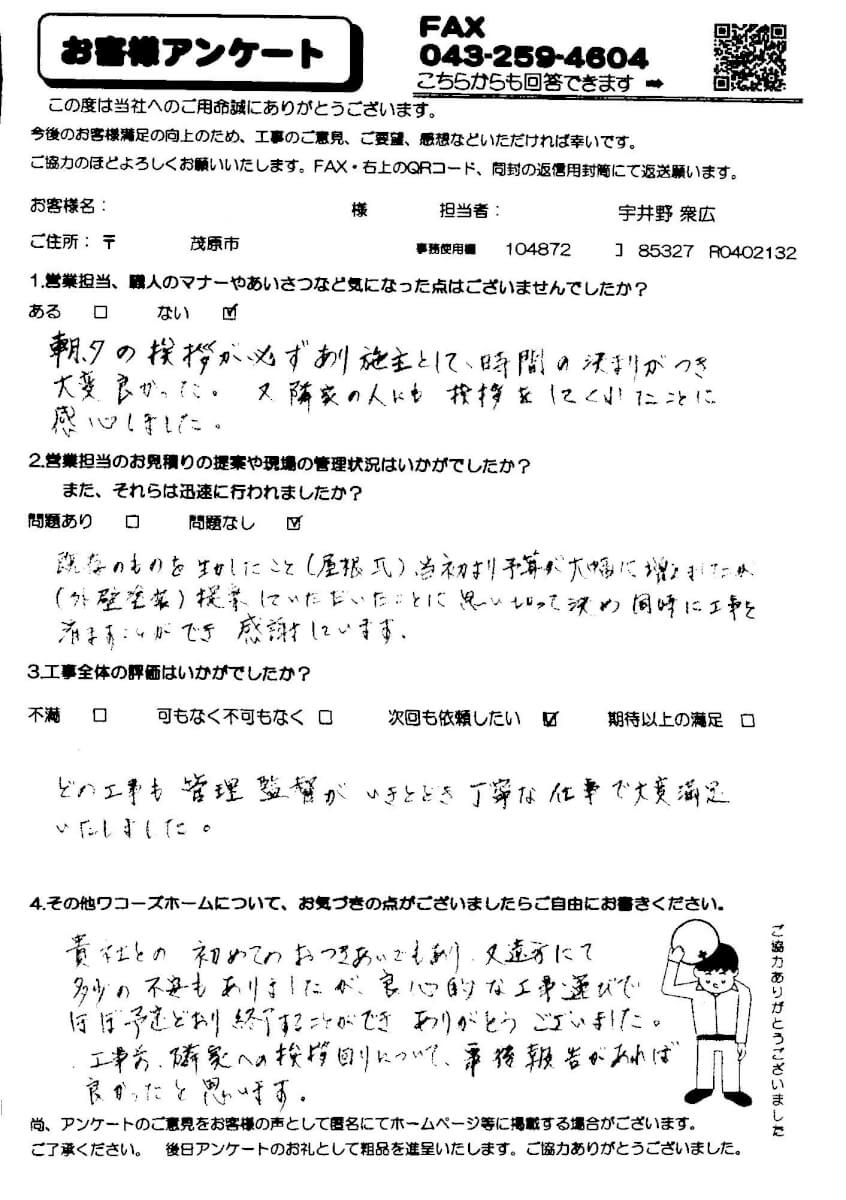 お客様アンケート
FAX
043-259-4604
こちらからも回答できます ➡
この度は当社へのご用命誠にありがとうございます。
今後のお客様満足の向上のため、工事のご意見、ご要望、感想などいただければ幸いです。
ご協力のほどよろしくお願いいたします。FAX・右上のQRコード、同封の返信用封筒にて返送願います。
お客様名： 様 担当者： 宇井野 衆広
ご住所：〒 茂原市 事務使用欄 104872 85327 R0402132
1.営業担当、職人のマナーやあいさつなど気になった点はございませんでしたか？
ある □ ない ☑
朝、夕の挨拶が必ずあり施主として、時間の決まりがつき
大変良かった。又隣家の人にも挨拶をしてくれたことに
感心しました。
2.営業担当のお見積りの提案や現場の管理状況はいかがでしたか？
また、それらは迅速に行われましたか？
問題あり □ 問題なし ☑
既存のものを生かしたこと(屋根瓦)当初より予算が大幅に増えましたが
(外壁塗装)提案していただいたことに思い切って決め同時に工事を
済ますことができ感謝しています。
3.工事全体の評価はいかがでしたか？
不満 □ 可もなく不可もなく □ 次回も依頼したい ☑ 期待以上の満足 □
どの工事も管理監督がいきとどき丁寧な仕事で大変満足
いたしました。
4.その他ワコーズホームについて、お気づきの点がございましたらご自由にお書きください。
貴社との初めてのおつきあいでもあり、又遠方にて
多少の不安もありましたが、良心的な工事運びで
ほぼ予定どおり終了することができありがとうございました。
工事前、隣家への挨拶回りについて、事後報告があれば
良かったと思います。
ご協力ありがとうございました
尚、アンケートのご意見をお客様の声として匿名にてホームページ等に掲載する場合がございます。
ご了承ください。 後日アンケートのお礼として粗品を進呈いたします。ご協力ありがとうございました。